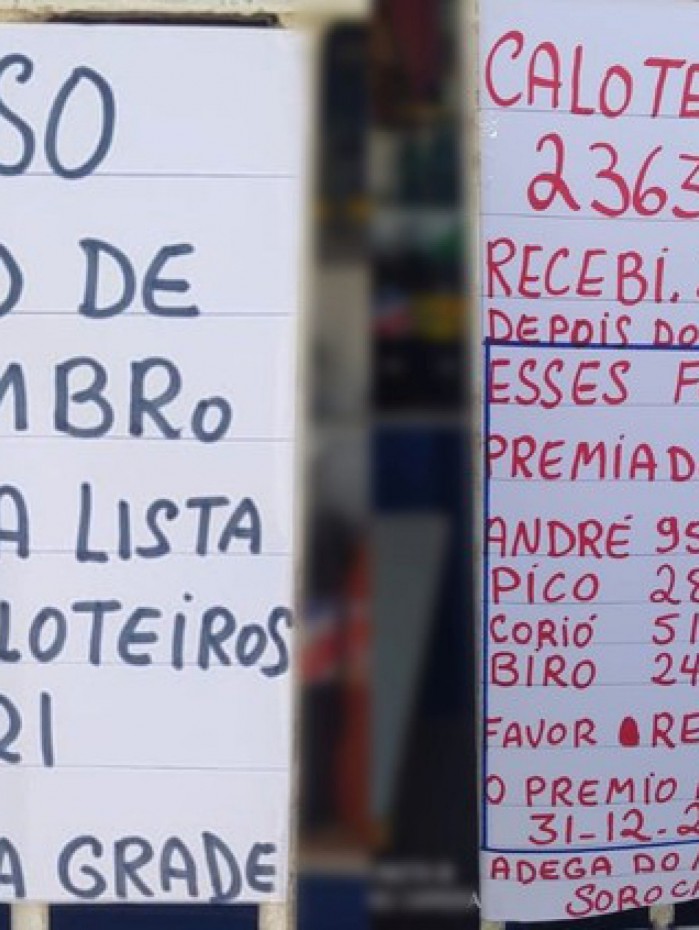 SO
O DE
MBRO
A LISTA
LOTEIROS
RI
A GRADE
CALOTE
2363
RECEBI.
DEPOIS DO
ESSES F
PREMIAD
ANDRÉ 95
PICO 28
CORIÓ 51
BIRO 24
FAVOR RE
O PREMIO
31-12-2
ADEGA DO
SOROCA